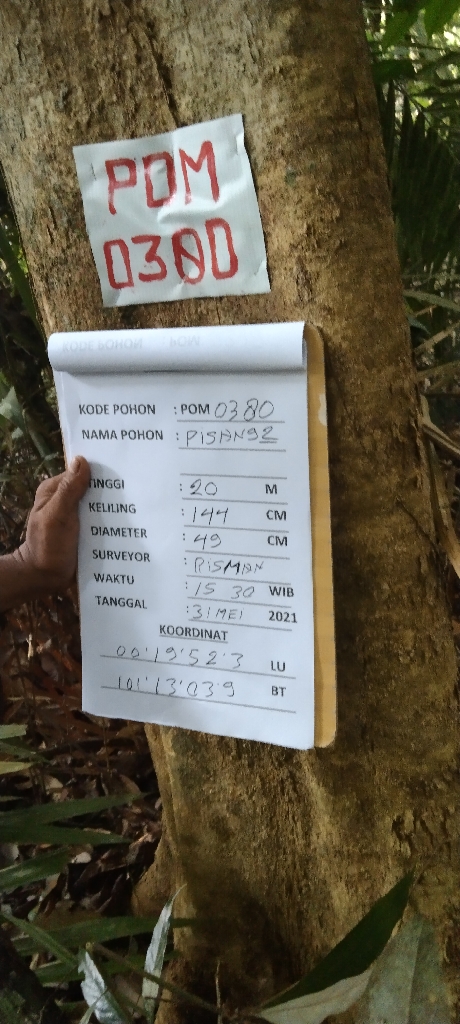 POM
0380
KODE POHON : POM 0380
NAMA POHON : PISANG2
TINGGI : 20 M
KELILING : 144 CM
DIAMETER : 49 CM
SURVEYOR : RISMAN
WAKTU : 15 30 WIB
TANGGAL : 31 MEI 2021
KOORDINAT
00'19'52'3 LU
101'13'03'9 BT